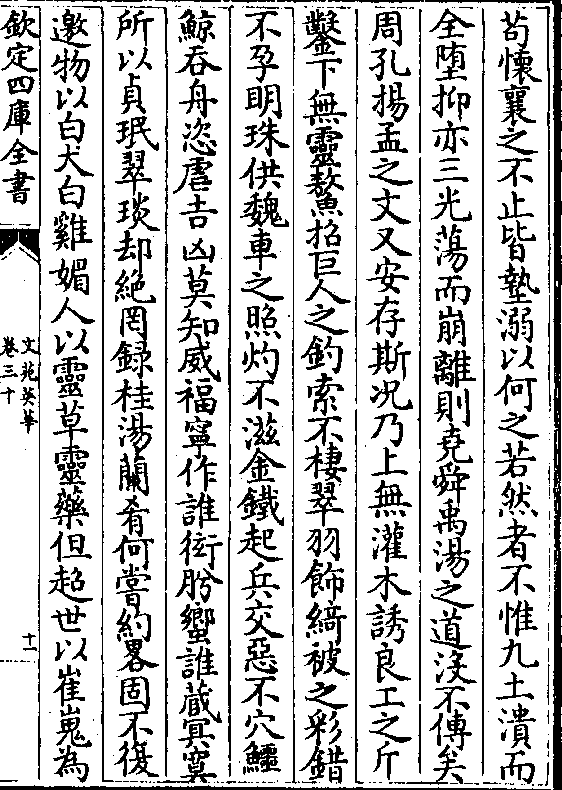 苟懷襄之不止皆墊溺以何之若然者不惟九土潰而
全墮抑亦三光蕩而崩離則堯舜禹湯之道沒不傳矣
周孔揚孟之文又安存斯况乃上無灌木誘良工之斤
鑿下無靈鼇招巨人之釣索不棲翠羽飾綺被之彩錯
不孕明珠供魏車之照灼不滋金鐵起兵交惡不穴鱷
鯨吞舟恣虐吉凶莫知威福寧作誰衒肹蠁誰蔵冥寞
所以貞珉翠琰却絶罔録桂湯蘭肴何嘗約畧固不復
邀物以白犬白雞媚人以靈草靈藥但超世以崔嵬為
欽定四庫全書
文苑英華
卷三十
十一